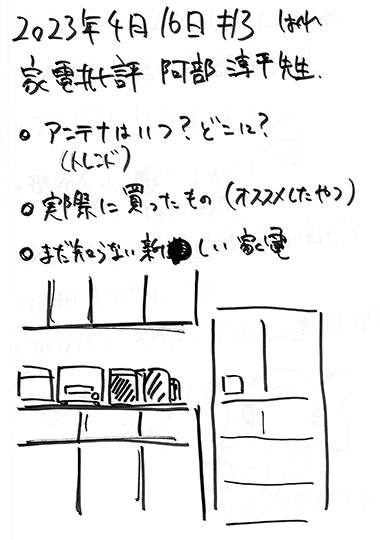 2023年4月16日 #13 はれ
家電批評 阿部 淳平先生.
○ アンテナはいつ？どこに？
(トレンド)
○ 実際に買ったもの (オススメしたやつ)
○ まだ知らない新しい家電